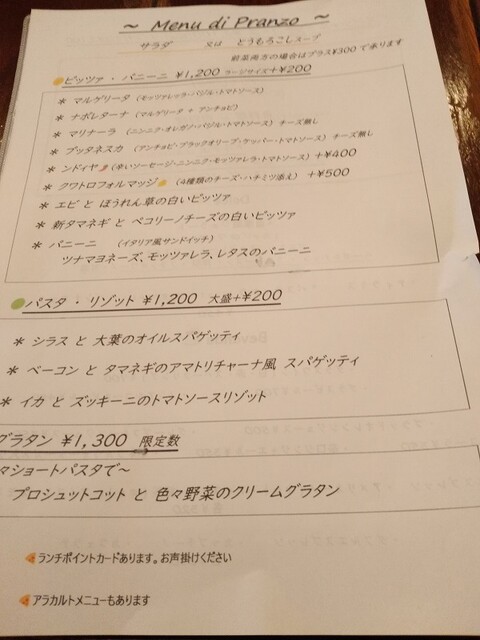 ～ Menu di Pranzo ～
サラダ 又は とうもろこしスープ
前菜両方の場合はプラス¥300で承ります
ピッツァ・パニーニ ¥1,200 ラージサイズ+¥200
* マルゲリータ (モッツァレッラ・バジル・トマトソース)
* ナポレターナ (マルゲリータ + アンチョビ)
* マリナーラ (ニンニク・オレガノ・バジル・トマトソース) チーズ無し
* プッタネスカ (アンチョビ・ブラックオリーブ・ケッパー・トマトソース) チーズ無し
* ンドイヤ (辛いソーセージ・ニンニク・モッツァレラ・トマトソース) +¥400
* クワトロフォルマッジ (4種類のチーズ・ハチミツ添え) +¥500
* エビ と ほうれん草の白いピッツァ
* 新タマネギ と ペコリーノチーズの白いピッツァ
* パニーニ (イタリア風サンドイッチ)
ツナマヨネーズ、モッツァレラ、レタスのパニーニ
パスタ・リゾット ¥1,200 大盛+¥200
* シラス と 大葉のオイルスパゲッティ
* ベーコン と タマネギのアマトリチャーナ風 スパゲッティ
* イカ と ズッキーニのトマトソースリゾット
グラタン ¥1,300 限定数
マショートパスタで～
プロシュットコット と 色々野菜のクリームグラタン
ランチポイントカードあります。お声掛けください
アラカルトメニューもあります